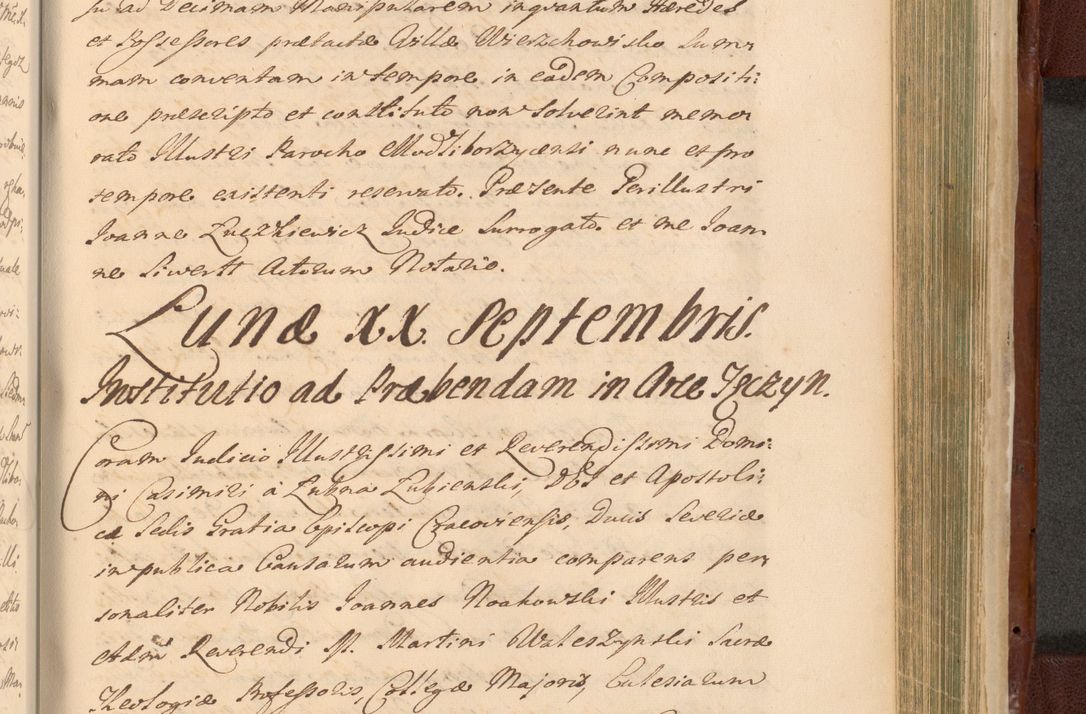 su ad Decimam Manipularem inquantum Hæredes
et Possessores prætactæ Villæ Wierzchowisko Sum-
mam conventam in tempore in eadem Compositi:
one præscripto et constituto non solverint memo
rato Illustri Parocho Modliborzycensi nunc et pro
tempore existenti reservato. Præsente Perillustri
Joanne Zuczkiewicz Judice Surrogato et me Joan
ne Siwertt Actorum Notario.
Lunæ XX. Septembris.
Institutio ad Præbendam in Arce Tęczyn.
Coram Judicio Illustrissimi et Reverendissimi Domi:
ni Casimiri à Łubna Łubienski, DEI et Apostoli:
cæ Sedis Gratia Episcopi Cracoviensis, Ducis Severiæ
in publica Causarum audientia comparens per
sonaliter Nobilis Joannes Noakowski Illustris et
Adm Reverendi M. Martini Waleszynski Sacræ
Theologiæ Professoris, Collegæ Majoris, Eclesiarum